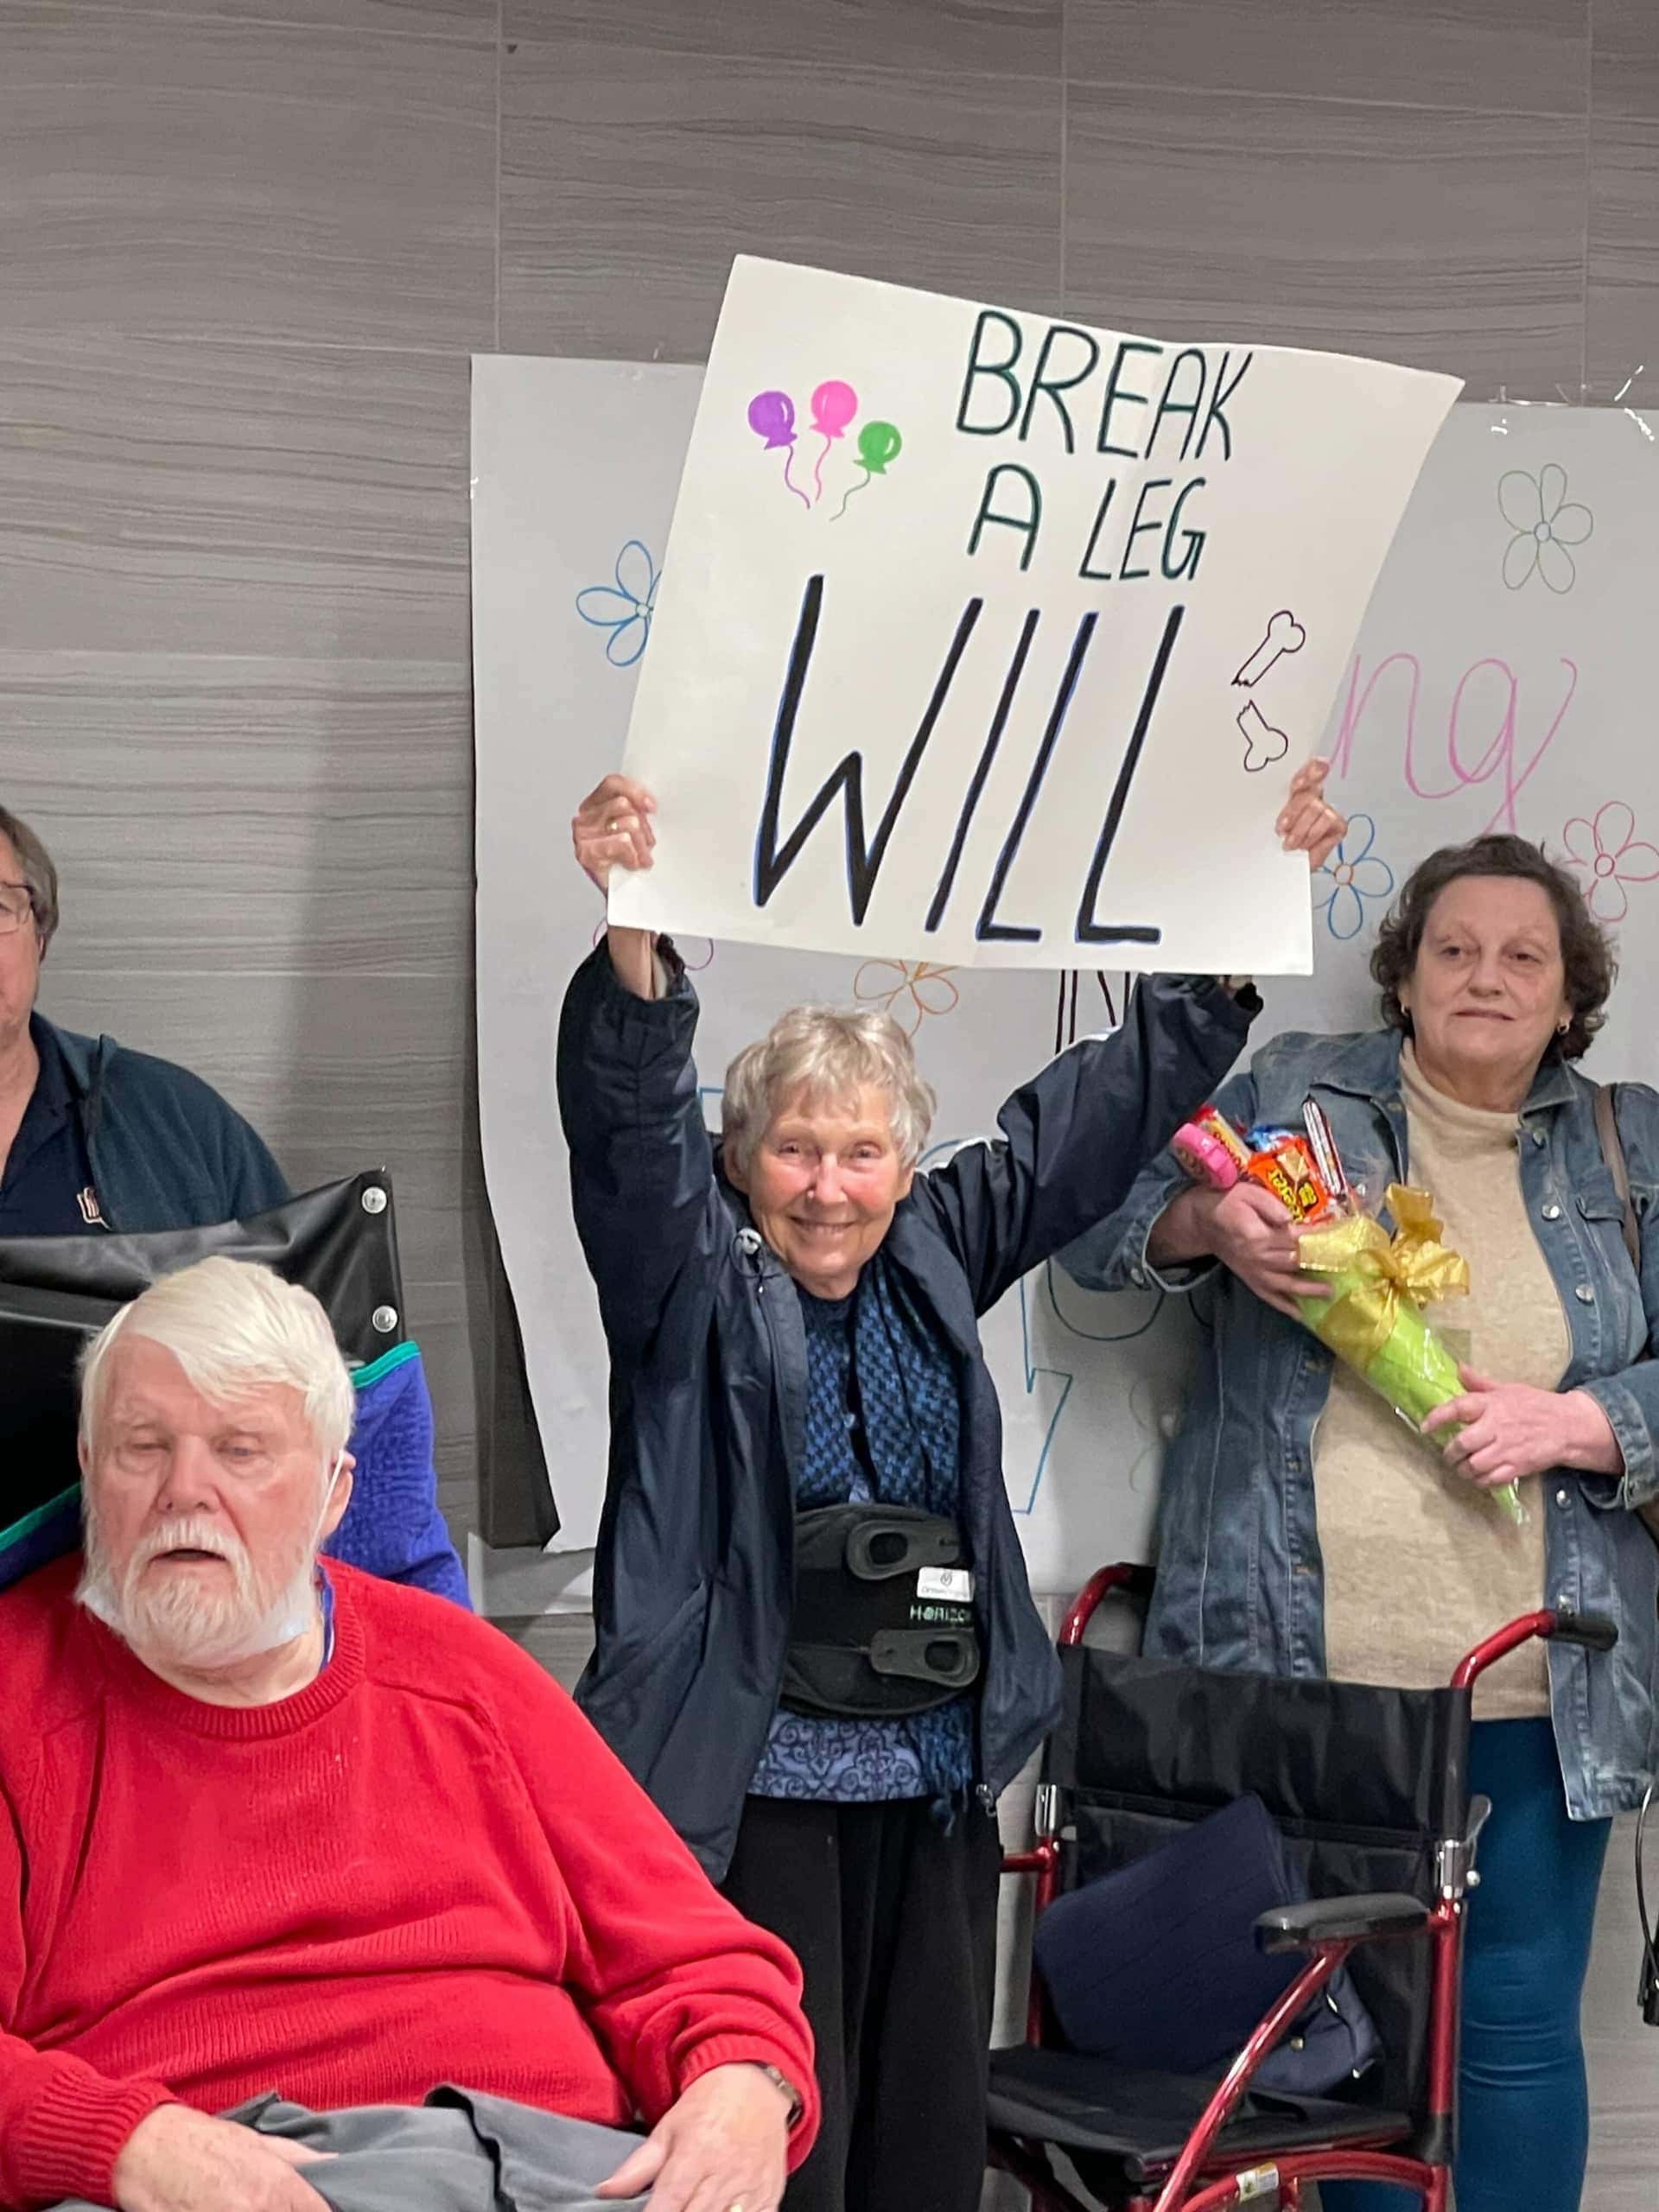 BREAK
A LEG
WILL
ng
HORIZO